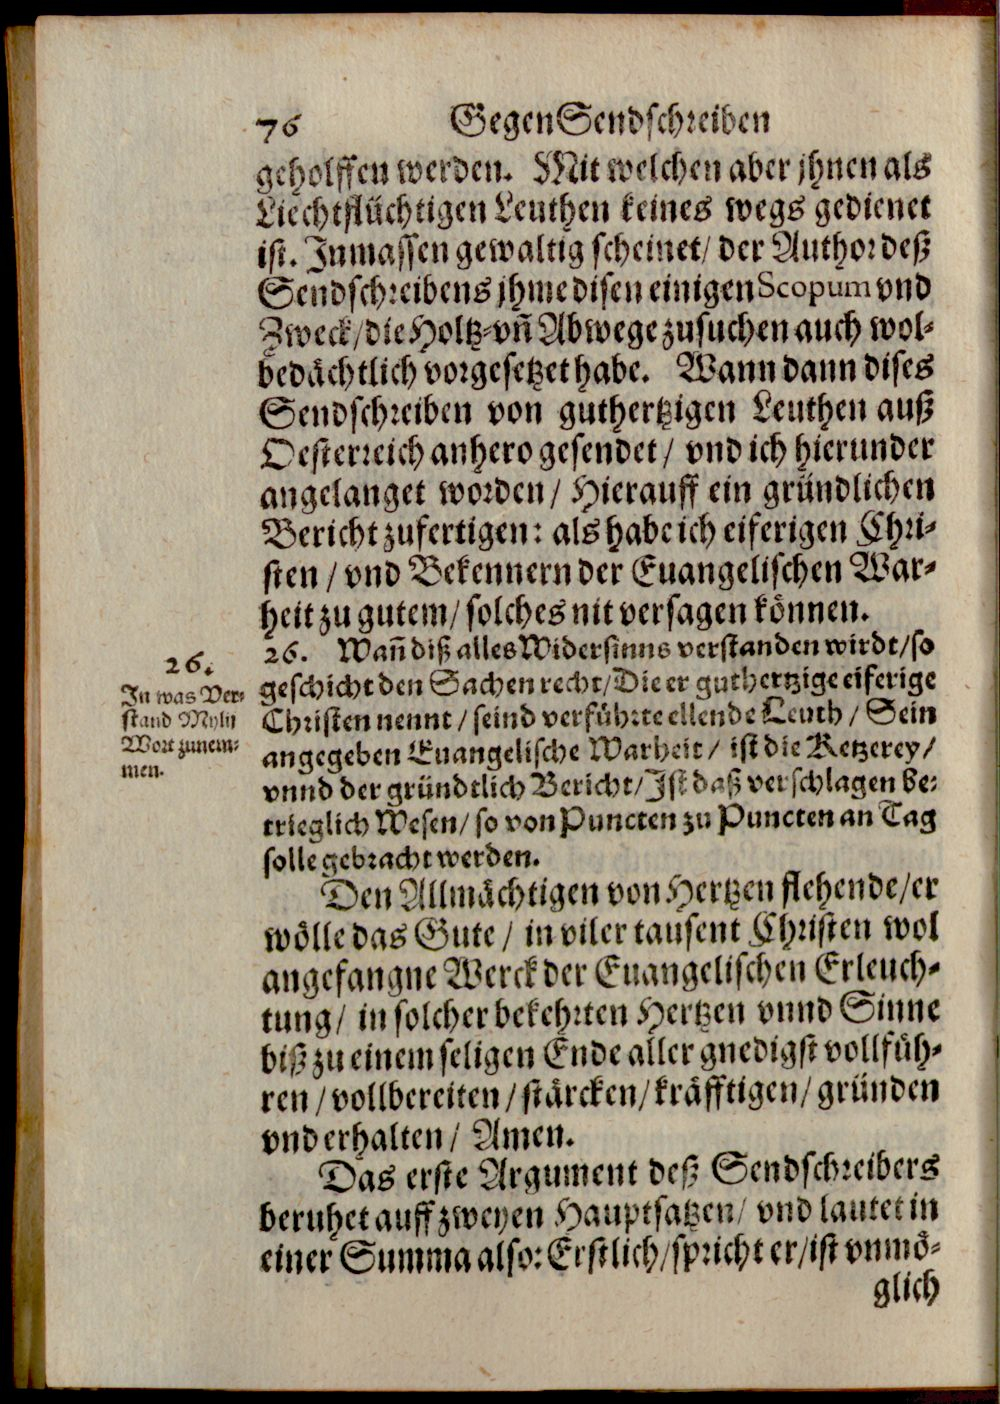 76 GegenSendschreiben
geholffen werden. Mit welchen aber jhnen als
Liechtflüchtigen Leuthen keines wegs gedienet
ist. Inmassen gewaltig scheinet/ der Author deß
Sendschreibens jhme disen einigen Scopum vnd
Zweck/ die Holtz-vñ Abwege zusuchen auch wol-
bedächtlich vorgesetzet habe. Wann dann dises
Sendschreiben von guthertzigen Leuthen auß
Oesterreich anhero gesendet/ vnd ich hierunder
angelanget worden/ Hierauff ein gründlichen
Bericht zufertigen: als habe ich eiferigen Chri-
sten / vnd Bekennern der Euangelischen War-
heit zu gutem/ solches nit versagen können.
26.
In was Ver-
stand Mylij
Wort zunem-
men.
26. Wañ diß alles Widersinns verstanden wirdt/so
geschicht den Sachen recht/ Die er guthertzige eiferige
Christen nennt / seind verführte ellende Leuth / Sein
angegeben Euangelische Warheit/ ist die Ketzerey/
vnnd der gründtlich Bericht/ Ist daß verschlagen be-
trieglich Wesen/ so von Puncten zu Puncten an Tag
solle gebracht werden.
Den Allmächtigen von Hertzen flehende/er
wölle das Gute / in viler tausent Christen wol
angefangne Werck der Euangelischen Erleuch-
tung/ in solcher bekehrten Hertzen vnnd Sinne
biß zu einem seligen Ende aller gnedigst vollfüh-
ren / vollbereiten / stärcken/ kräfftigen/ gründen
vnd erhalten / Amen.
Das erste Argument deß Sendschreibers
beruhet auff zweyen Hauptsatzen/ vnd lautet in
einer Summa also: Erstlich/spricht er/ist vnmö-
glich